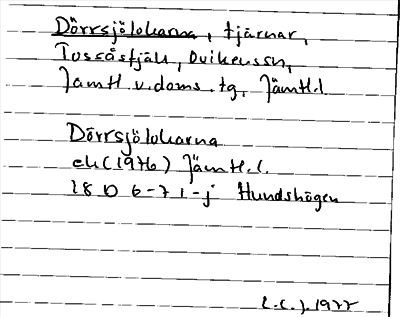 Dörrsjölokarna, tjärnar,
Tossåsfjäll, Ovikenssn,
Jämtl. v. doms. tg, Jämtl.l.
Dörrsjölokarna
ek (1976) Jämtl.l.
18 D 6-7 i-j Hundshögen
1977